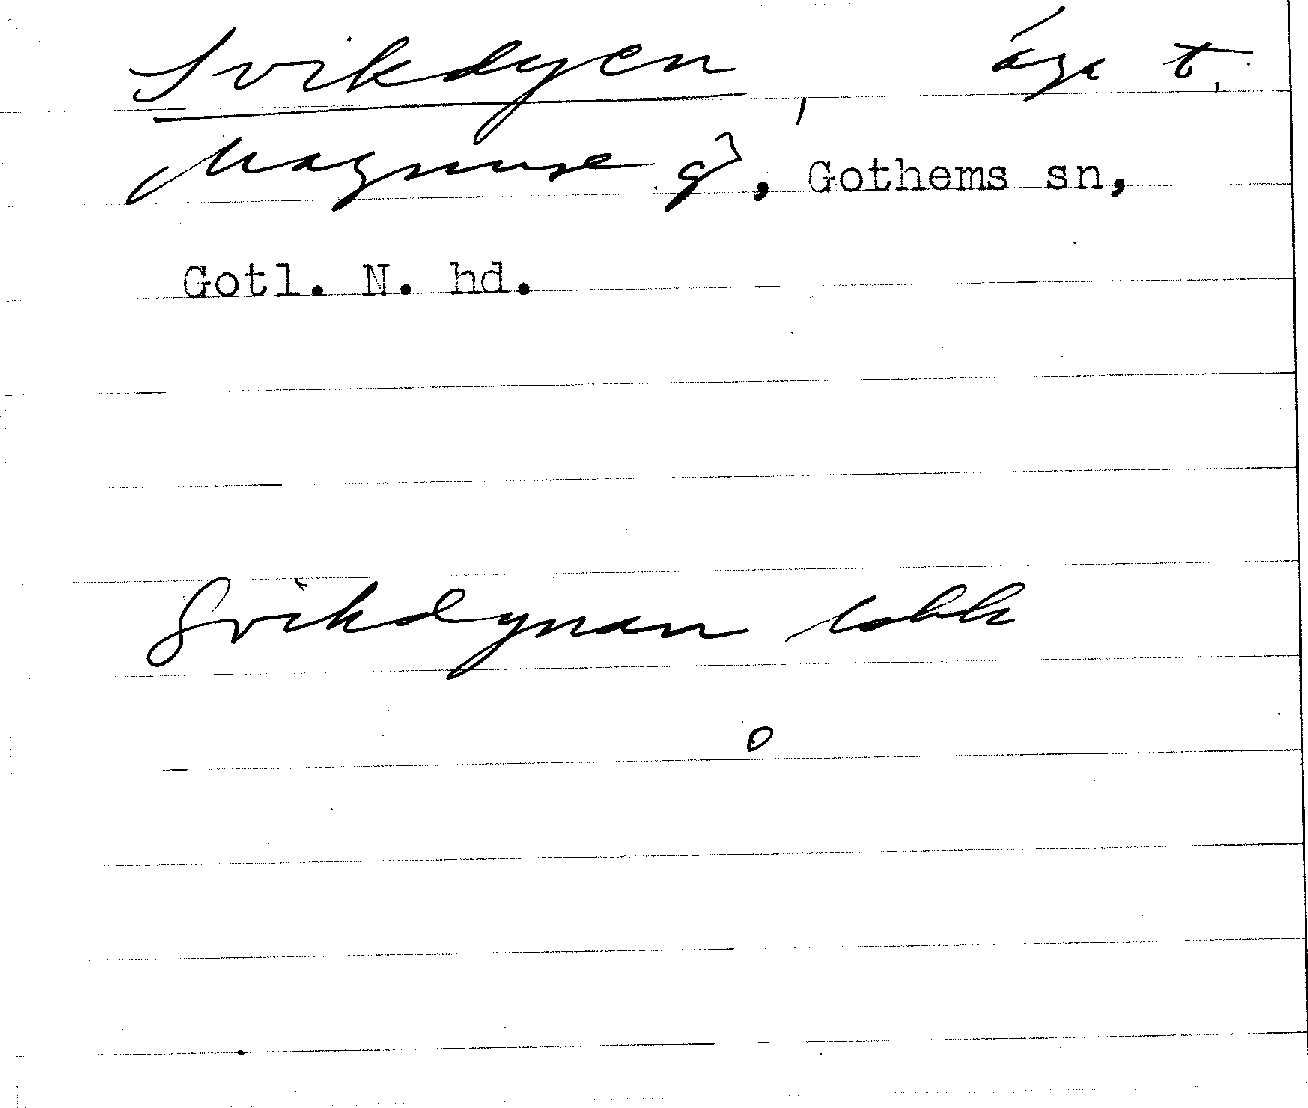 Svikdyen, äga t.
Magnuse gd, Gothems sn,
Gotl. N. hd.
Svikdynan